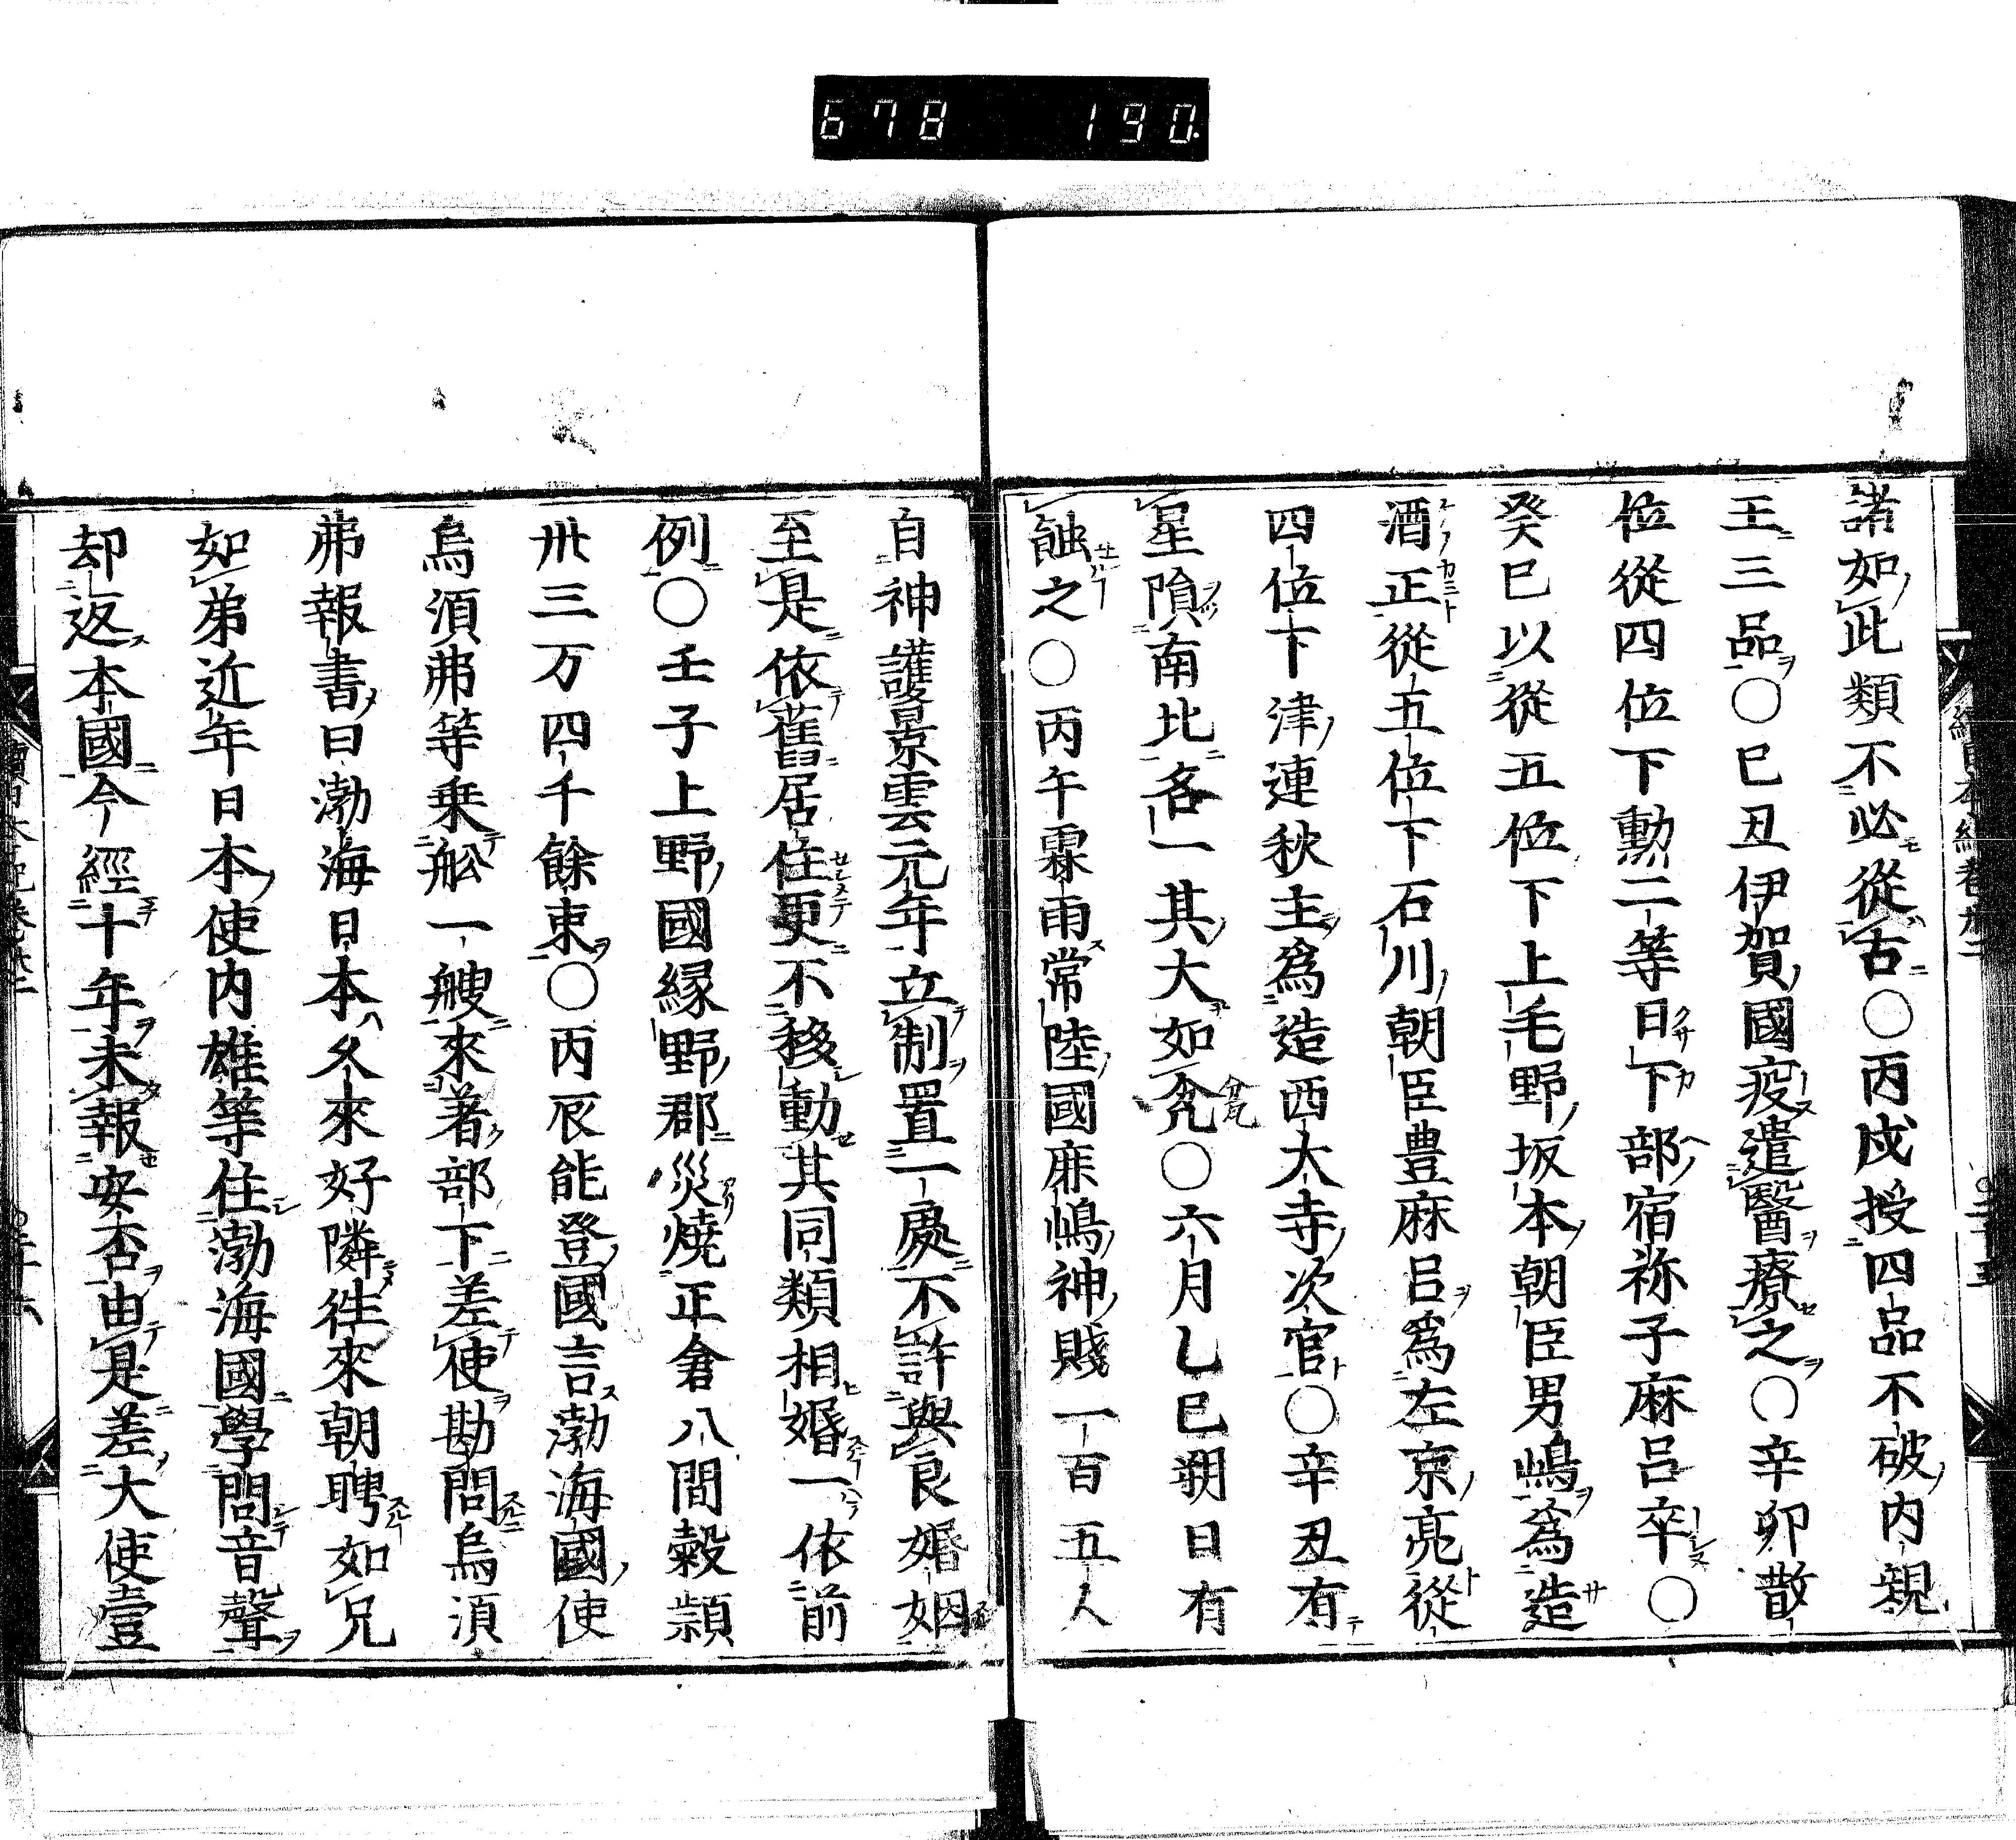 678 190
諸如此類不必從古〇丙戌授四品不破内親
王三品〇巳丑伊賀國疫遣醫療之〇辛卯散
位從四位下勳二等日下部宿祢子麻呂卒〇
癸巳以從五位下上毛野坂本朝臣男嶋爲造
酒正從五位下石川朝臣豊麻呂爲左京亮從
四位下津連秋主爲造西大寺次官〇辛丑有
星隕南北各一其大如瓫〇六月乙巳朔日有
蝕之〇丙午霖雨常陸國麻嶋神賤一百五人
自神護景雲元年立制置一處不許與良婚姻
至是依舊居住更不移動其同類相婚一依前
例〇壬子上野國緑野郡災燒正倉八間穀潁
卅三万四千餘束〇丙辰能登國言渤海國使
烏湏弗等乗舩一艘來著部下差使勘問烏湏
弗報書曰渤海日本久來好隣徃來朝聘如兄
如弟近年日本使内雄等住渤海國學問音聲
却返本國今經十年未報安否由是差大使壹